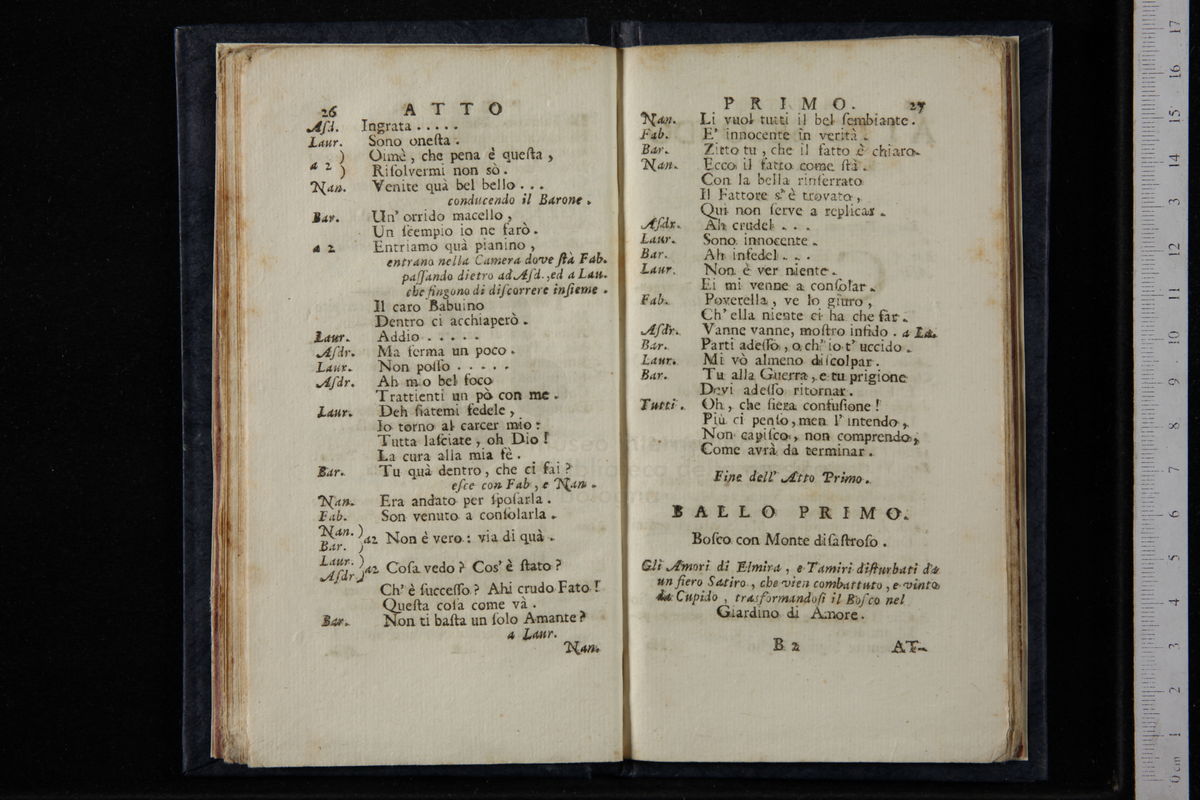 26 ATTO
Aſd. Ingrata . . . . .
Laur. Sono oneſta .
a 2 ) Oimè, che pena è queſta ,
) Riſolvermi non sò .
Nan. Venite quà bel bello . . .
conducendo il Barone .
Bar. Un' orrido macello ,
Un ſcempio io ne farò .
a 2 Entriamo quà pianino ,
entrano nella Camera dove ſtà Fab.
paſſando dietro ad Aſd. ,ed a Lau.
che fingono di diſcorrere inſieme .
Il caro Babuino
Dentro ci acchiaperò .
Laur. Addio . . . . .
Aſdr. Ma ferma un poco .
Laur. Non poſſo . . . . .
Aſdr. Ah m o bel foco
Trattienti un pò con me .
Laur. Deh ſiatemi fedele ,
Io torno al carcer mio :
Tutta laſciate , oh Dio !
La cura alla mia fè .
Bar. Tu quà dentro , che ci fai ?
eſce con Fab , e Nan .
Nan. Era andato per ſpoſarla .
Fab. Son venuto a conſolarla .
Nan. )
Bar. ) a2 Non è vero : via di quà .
Laur. )
Aſdr. ) a2 Coſa vedo ? Cos' è ſtato ?
Ch' è ſucceſſo ? Ahi crudo Fato !
Queſta coſa come và .
Bar. Non ti baſta un ſolo Amante ?
a Laur.
Nan.
PRIMO. 27
Nan. Li vuol tutti il bel ſembiante .
Fab. E' innocente in verità .
Bar. Zitto tu , che il fatto è chiaro.
Nan. Ecco il fatto come ſtà .
Con la bella rinferrato
Il Fattore s' è trovato ,
Qui non ſerve a replicar .
Aſdr. Ah crudel . . .
Laur. Sono innocente .
Bar. Ah infedel . . .
Laur. Non è ver niente .
Ei mi venne a conſolar .
Fab. Poverella , ve lo giuro ,
Ch' ella niente ci ha che far .
Aſdr. Vanne vanne, moſtro infido . a La.
Bar. Parti adeſſo , o ch' io t' uccido .
Laur. Mi vò almeno diſcolpar .
Bar. Tu alla Guerra , e tu prigione
Devi adeſſo ritornar .
Tutti . Oh , che fiera confuſione !
Più ci penſo , men l' intendo ,
Non capiſco , non comprendo ,
Come avrà da terminar .
Fine dell' Atto Primo .
BALLO PRIMO.
Boſco con Monte diſaſtroſo .
Gli Amori di Elmira , e Tamiri diſturbati da
un fiero Satiro , che vien combattuto , e vinto
da Cupido , trasformandoſi il Boſco nel
Giardino di Amore .
B 2 AT-